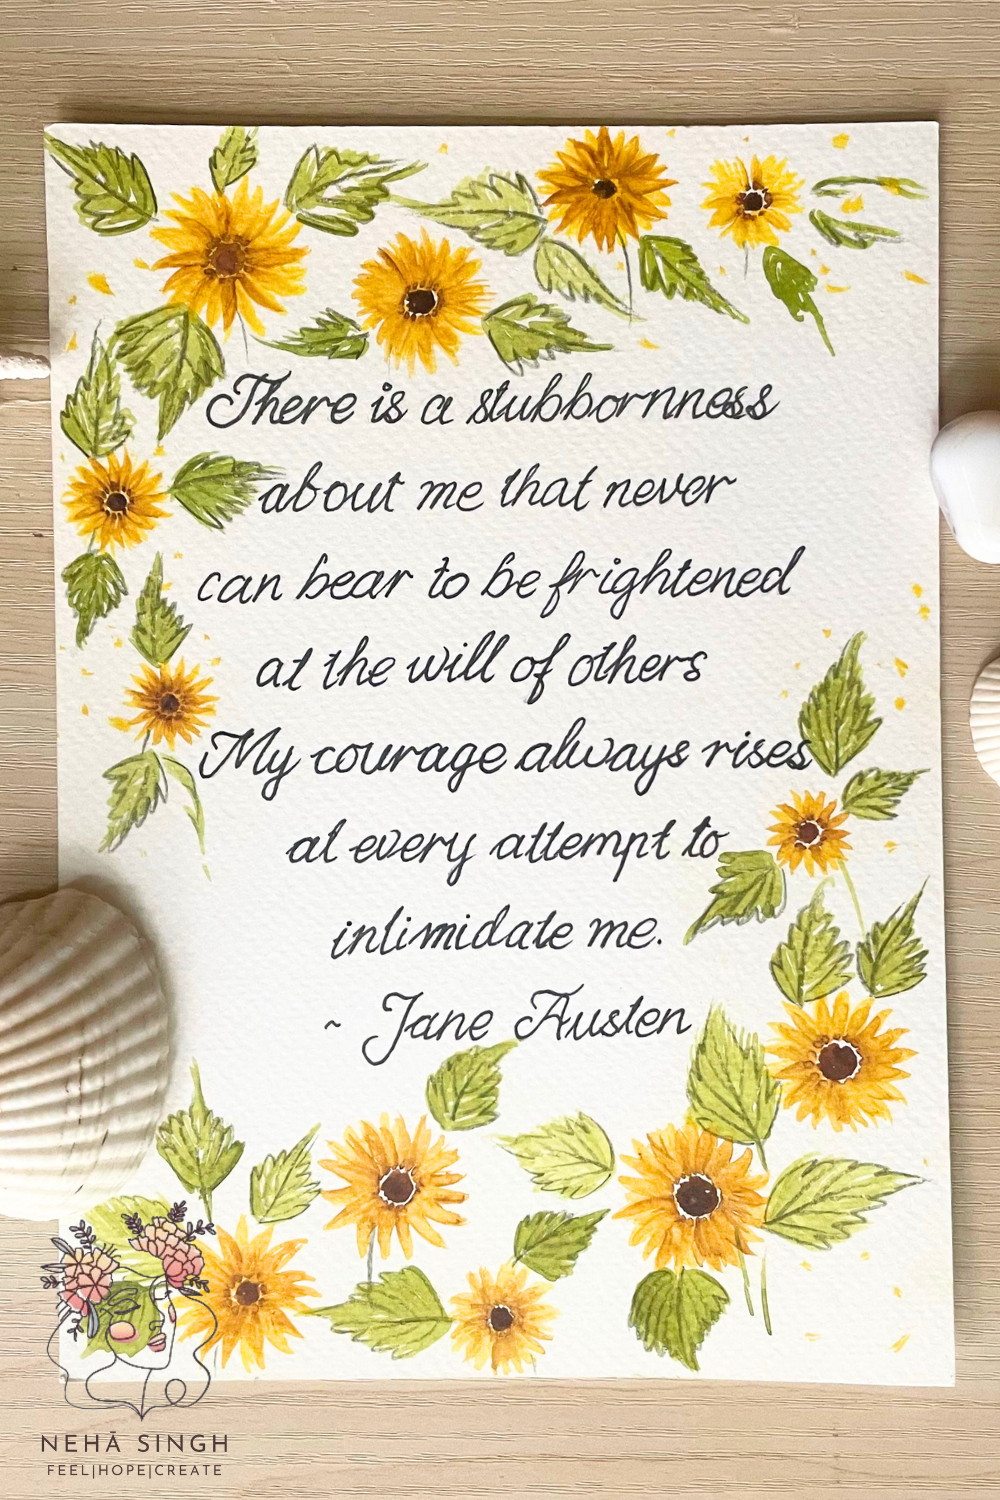 There is a stubbornness
about me that never
can bear to be frightened
at the will of others
My courage always rises
at every attempt to
intimidate me.
~ Jane Austen
NEHĀ SINGH
FEEL|HOPE|CREATE